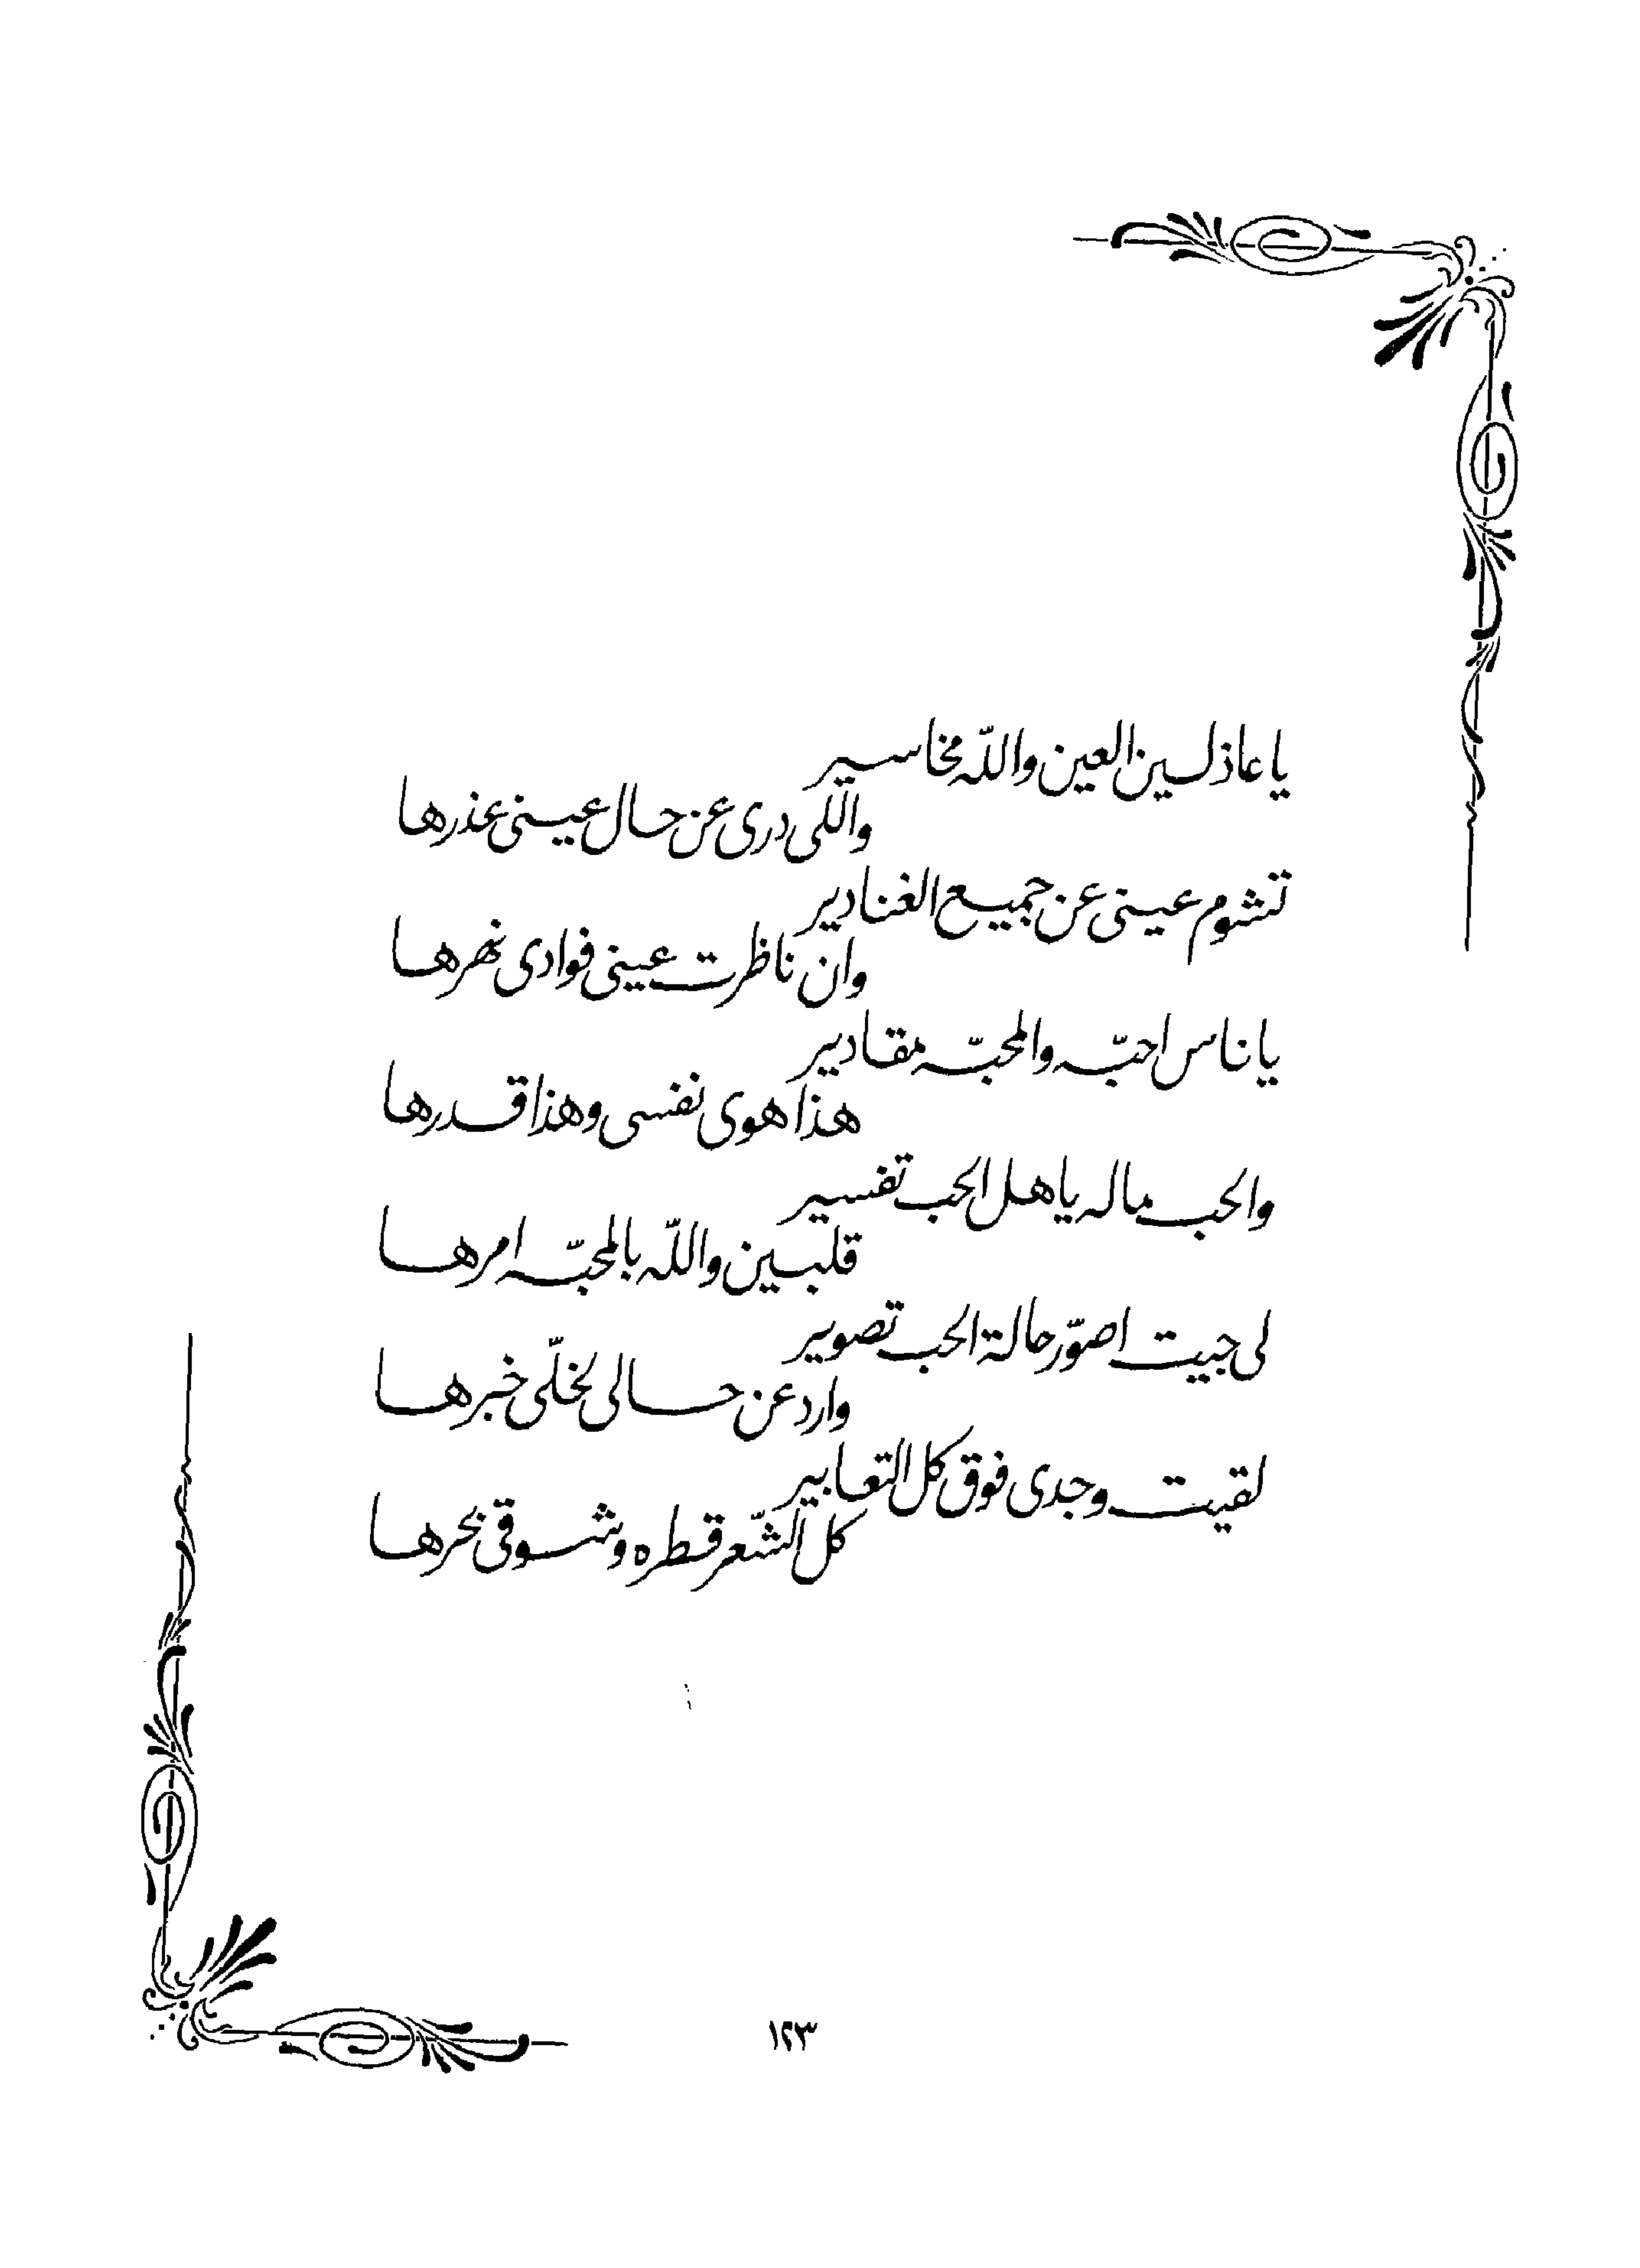 يا عاذلين العين والله مخاسير
واللّى درى عن حال عينى عذرها
تشوم عينى عن جميع الغنادير
وان ناظرت عينى فوادى نهرها
يا ناس احبّه والمحبّه مقادير
هذا هوى نفسى وهذا قدرها
والحب ماله يا هل الحب تفسير
قلبين واللّه بالمحبّه امرها
لى جيت اصوّر حالة الحب تصوير
وارد عن حالى لخلّى خبرها
لقيت وجدى فوق كل التعابير
كل الشّعر قطره وشوقى بحرها
١٢٣